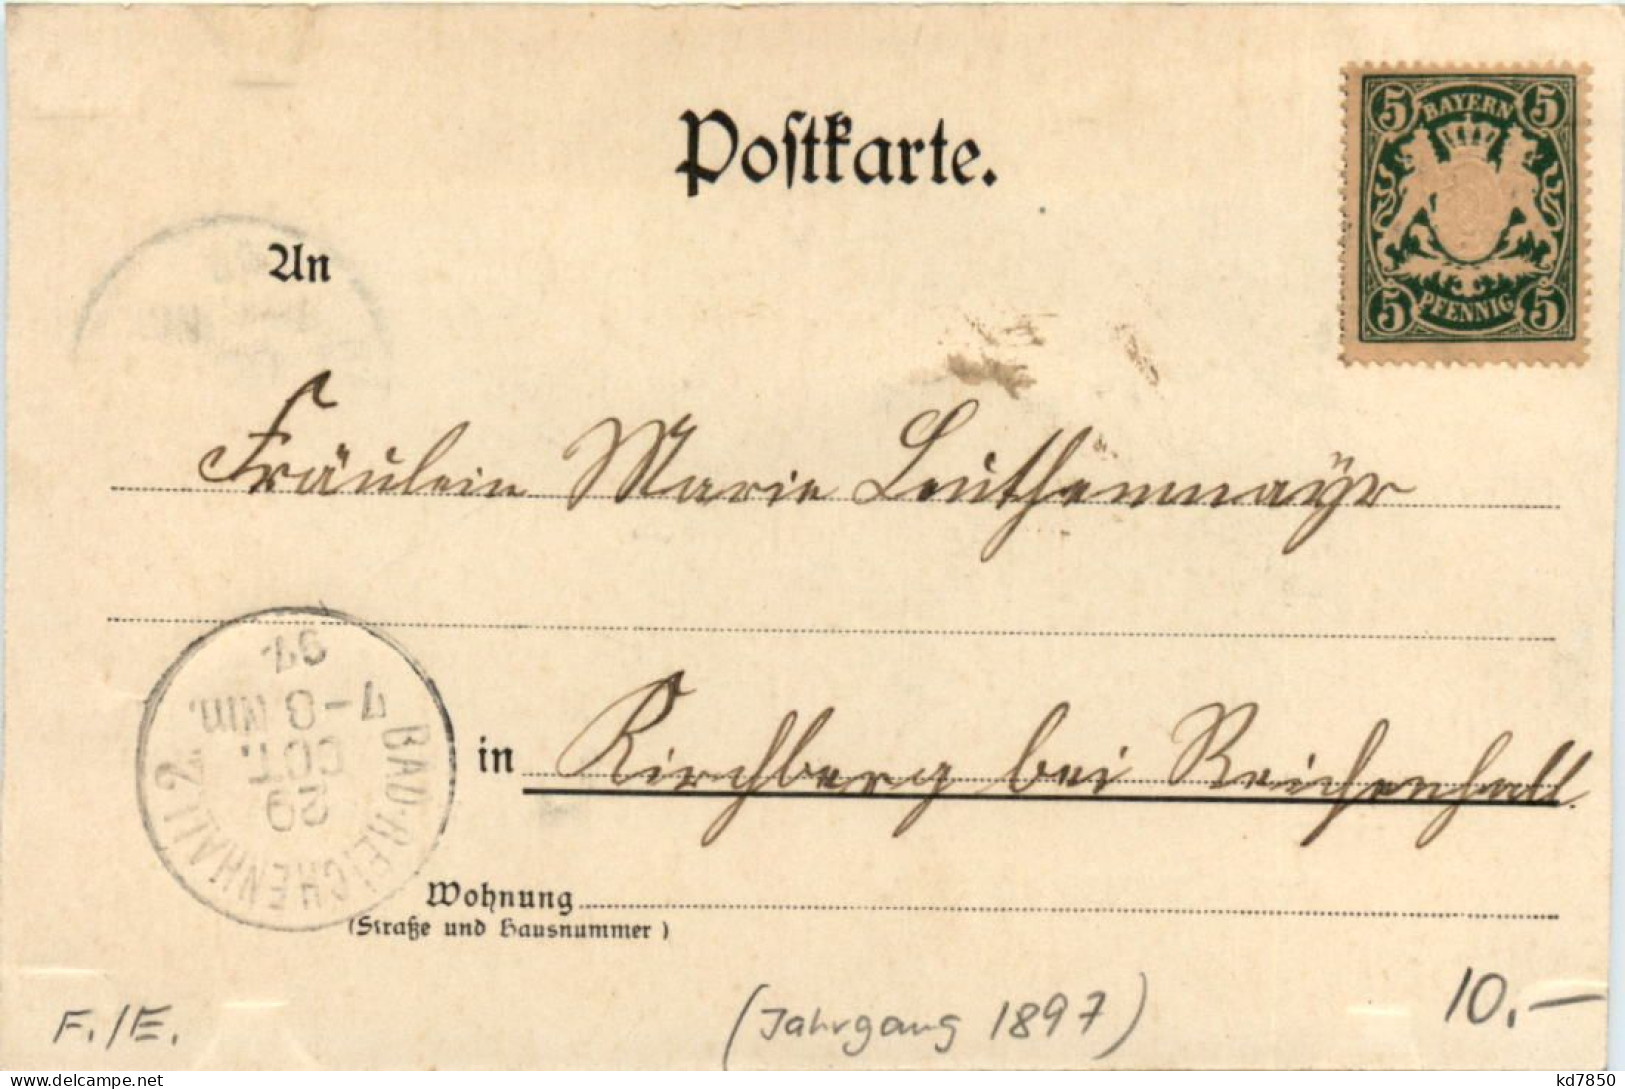 Postkarte.
5 BAYERN 5
5 PFENNIG 5
An
Fräulein Marie Leuthenmayr
in Kirchberg bei Reichenhall.
BAD-REICHENHALL 2.
29
OCT.
7-8 Nm.
97
Wohnung
(Straße und Hausnummer)
F./E.
(Jahrgang 1897)
10.-
kd7850